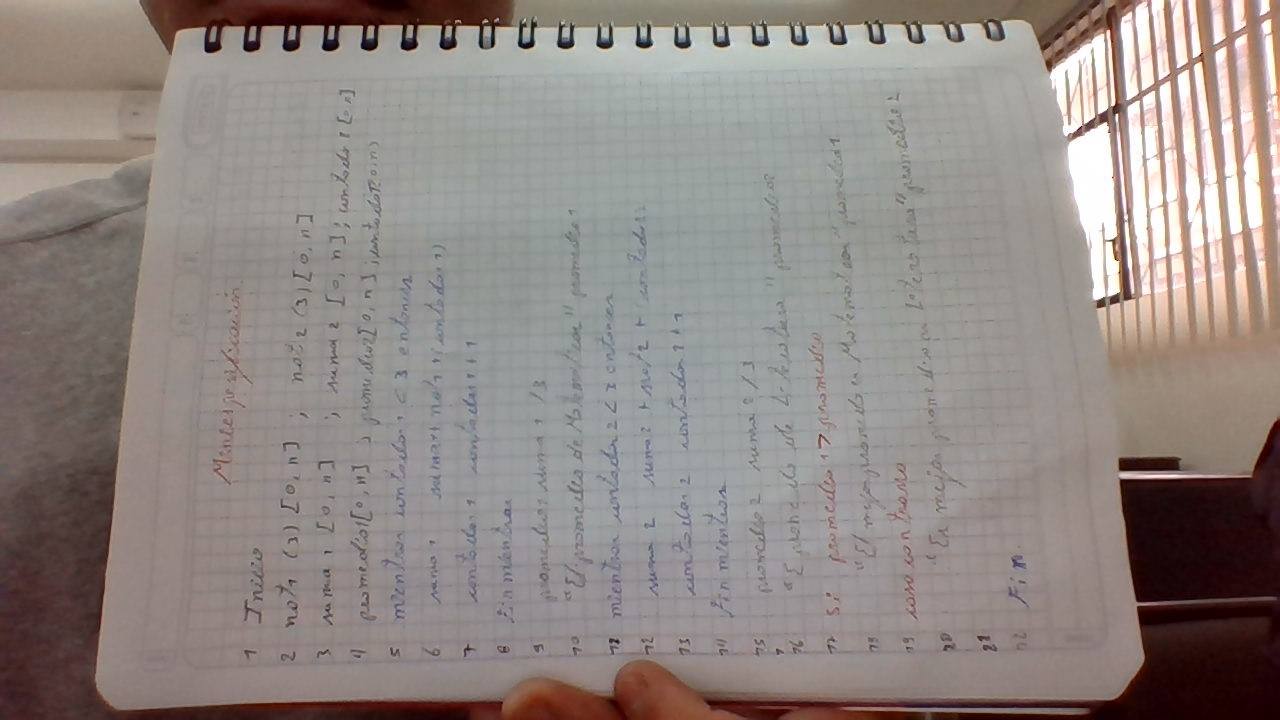 1 Inicio
2 not1 (3) [0, n] ; not2 (3) [0, n]
3 suma 1 [0, n] ; suma 2 [0, n] ; contador 1 [0, n]
4 promedio1 [0, n] ; promedio2 [0, n] ;
5 mientras contador 1 < 3 entonces
6 suma 1 suma 1 + not 1 (contador 1)
7 contador 1 contador 1 + 1
8 Finmientras
9 promedio 1 suma 1 / 3
10 "El promedio de Matematicas" promedio 1
11 mientras contador 2 < 3 entonces
12 suma 2 suma 2 + not 2 + contador 2
13 contador 2 contador 2 + 1
14 Finmientras
15 promedio 2 suma 2 / 3
16 "El promedio de Literatura" promedio
17 Si promedio 1 > promedio
18 "El mejor promedio en Matematicas" promedio 1
19 caso contrario
20 mejor promedio es Literatura" promedio 2
21
22 Fin